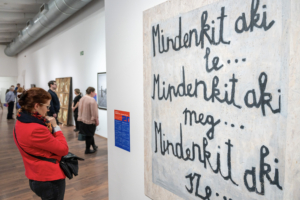 Mindenkit aki
le...
Mindenkit aki
meg...
Mindenkit aki